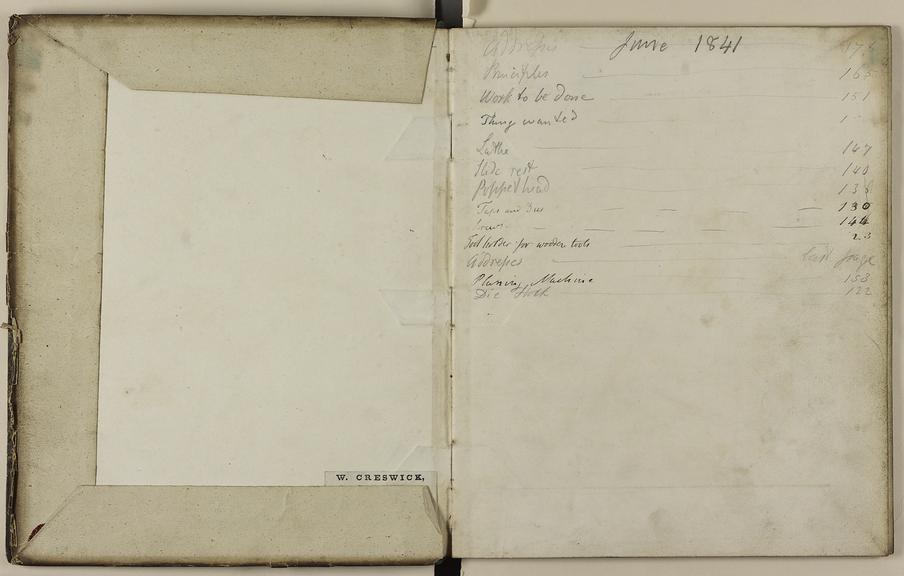 W. CRESWICK,
Addresses June 1841 173
Principles 165
Work to be done 151
Things wanted
Lathe 147
Slide rest 140
Poppet head 138
Taps and Dies 130
Screws 144
Tool holder for wooden tools 23
Addresses last page
Planing Machine 153
Die Stock 122